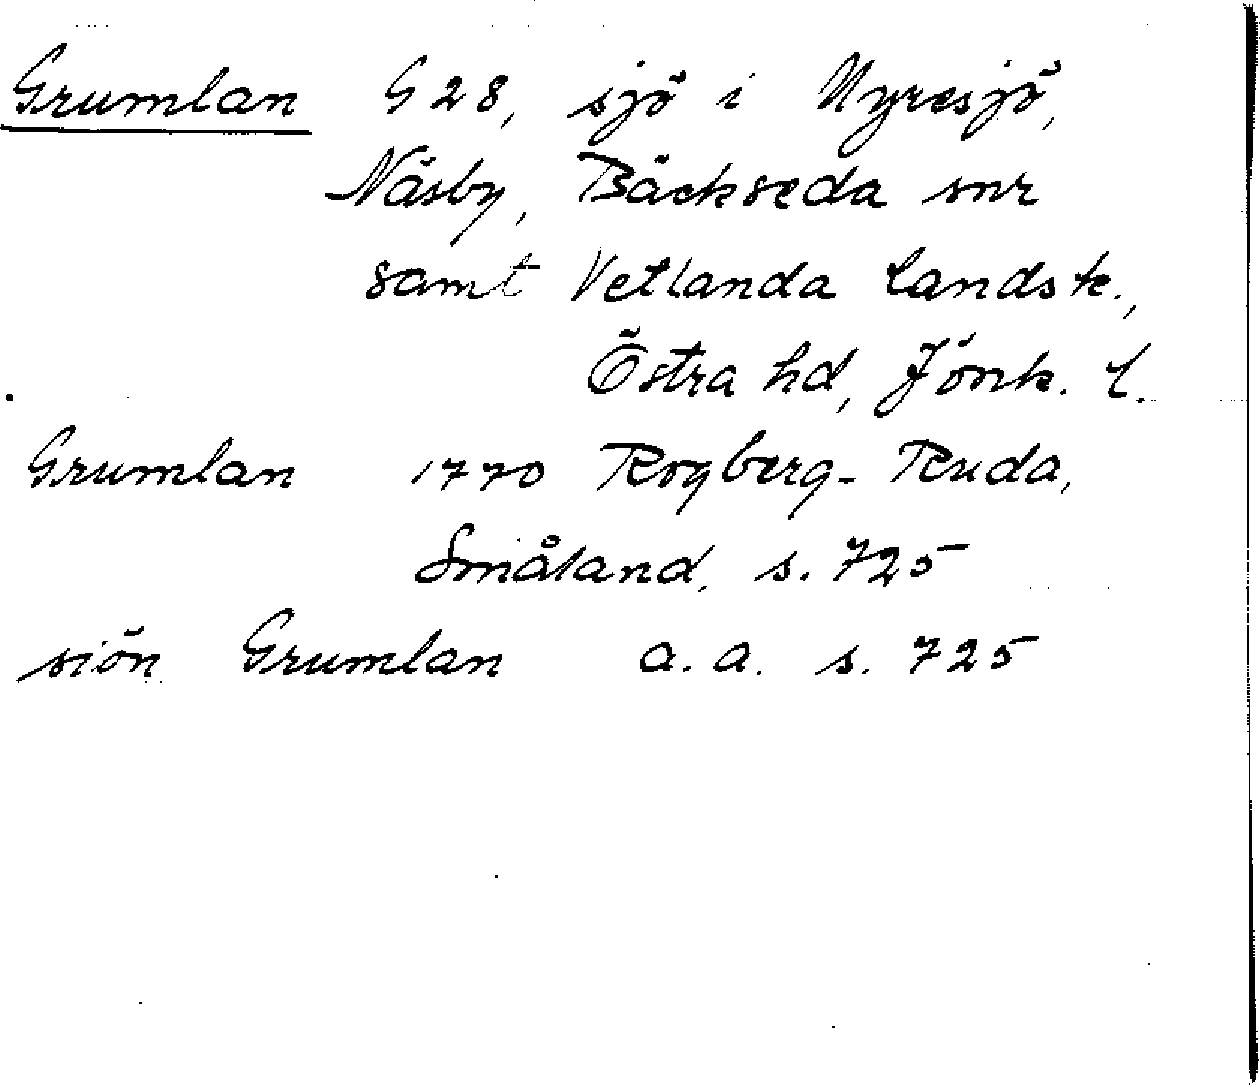 Grumlan G 28, sjö i Myresjö,
Näsby, Bäckseda snr
samt Vetlanda landsk.,
Östra hd, Jönk. l.
Grumlan 1770 Rogberg-Ruda,
Småland, s. 725
siön Grumlan a. a. s. 725